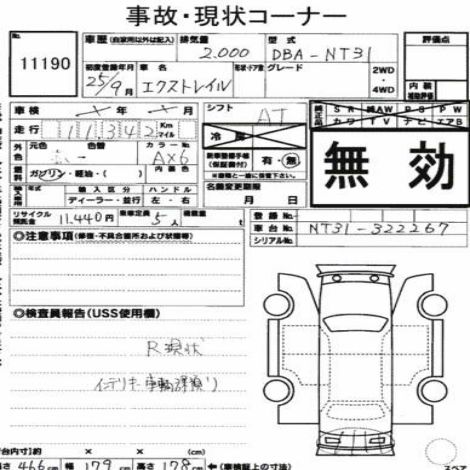 事故・現状コーナー
No. 11190
車歴 (自家用以外は記入) 排気量 2.000 型式 DBA-NT31 評価点
初度登録年月 25/9月 車名 エクストレイル 形状・ドア数 グレード 2WD・4WD
内装 補助評価
車検 年 月 シフト AT
走行 11342 Km マイル 冷房
純正品 SR 純AW PS PW
カワ TV ナビ エアB
外色 元色 カラーNo. AX6 内装色
新車整備手帳(保証書付) 有・無
※車検と一緒に後送下さい。
無効
燃料 ガソリン・軽油・( )
名義変更期限
月 日
輸入車 年式 輸入区分 ハンドル
ディーラー・並行 左・右
リサイクル預託金 11.440円 乗車定員 5人 積載量
登録No.
車台No. NT31-322267
シリアルNo.
◎注意事項 (修復・不具合箇所および状態等)
◎検査員報告(USS使用欄)
R現状
インテリキー
台内寸〕約 × × (cm)
長さ 466cm 幅 179cm 高さ 178cm ←(車検証上の寸法)